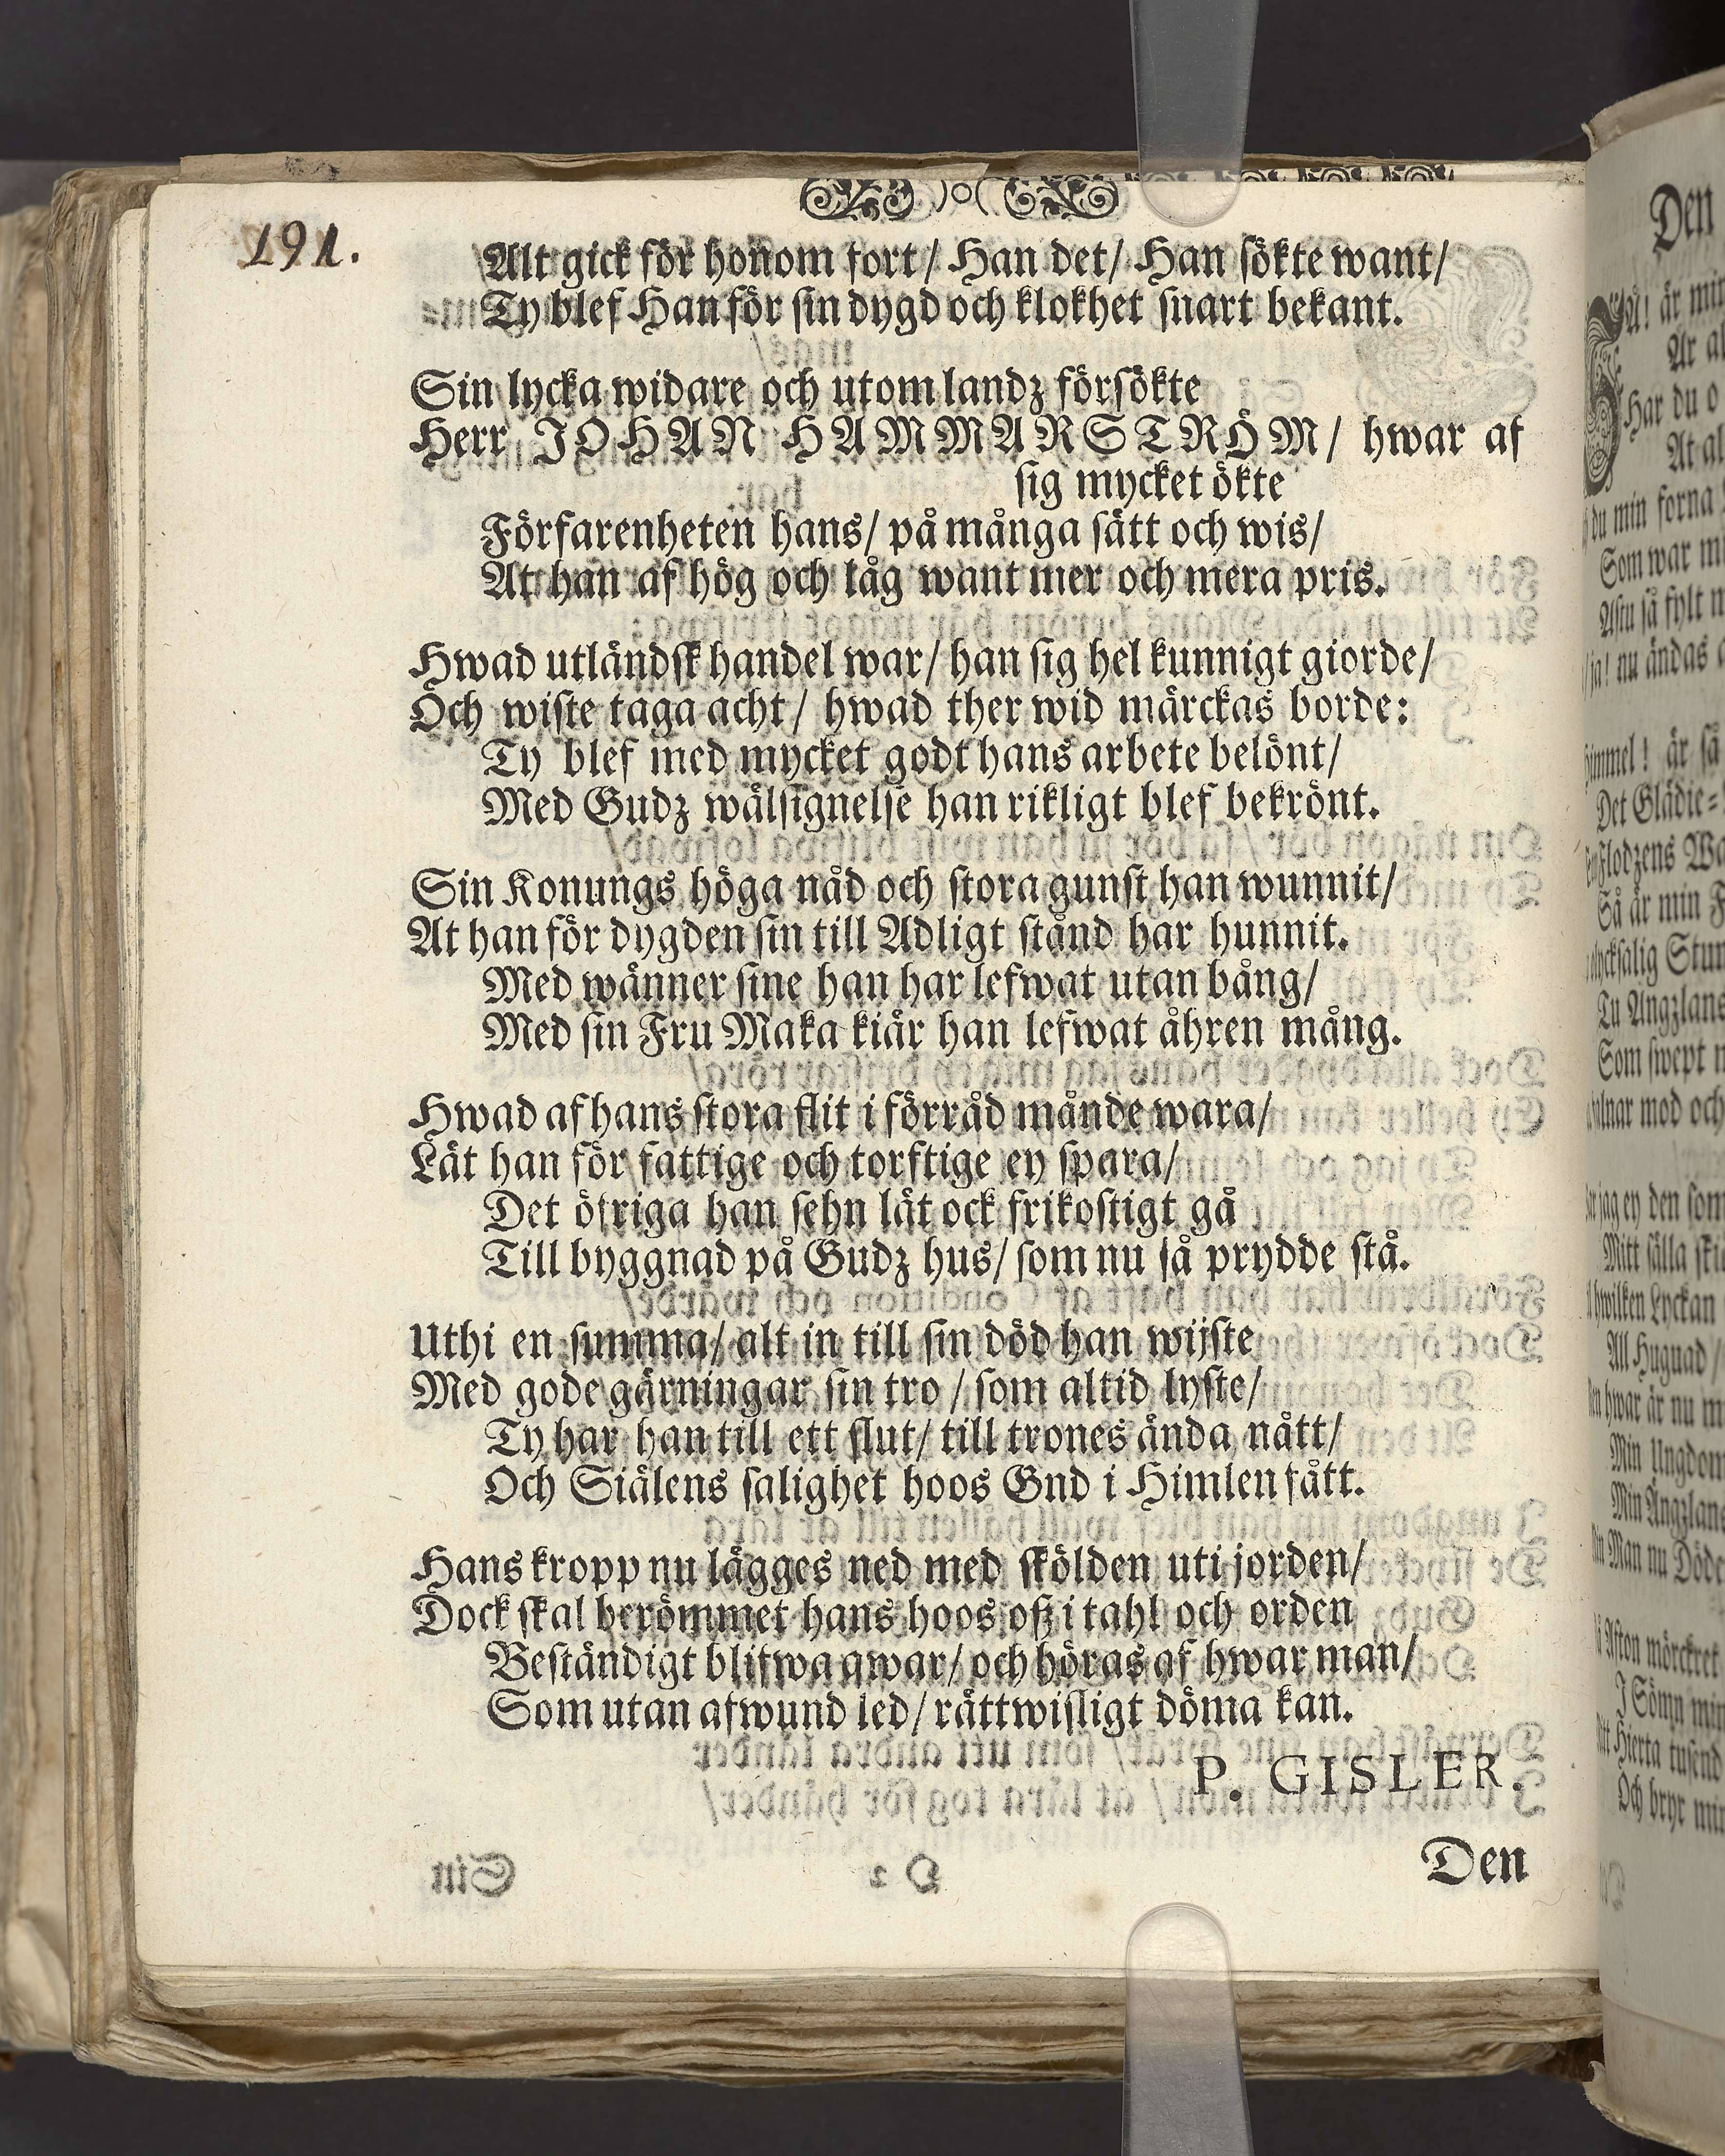 191.
)o(
Alt gick för honom fort / Han det / Han sökte want /
Ty blef Han för sin dygd och klokhet snart bekant.
Sin lycka widare och utom landz försökte
Herr JOHAN HAMMARSTRÖM / hwar af
sig mycket ökte
Förfarenheten hans / på många sätt och wis /
At han af hög och låg want mer och mera pris.
Hwad utländsk handel war / han sig hel kunnigt giorde /
Och wiste taga acht / hwad ther wid märckas borde:
Ty blef med mycket godt hans arbete belönt /
Med Gudz wälsignelse han rikligt blef bekrönt.
Sin Konungs höga nåd och stora gunst han wunnit /
At han för dygden sin till Adligt stånd har hunnit.
Med wänner sine han har lefwat utan bång /
Med sin Fru Maka kiär han lefwat åhren mång.
Hwad af hans stora flit i förråd månde wara /
Lät han för fattige och torftige ey spara /
Det öfriga han sehn lät ock frikostigt gå
Till byggnad på Gudz hus / som nu så prydde stå.
Uthi en summa / alt in till sin död han wijste
Med gode gärningar sin tro / som altid lyste /
Ty har han till ett slut / till trones ända nått /
Och Siälens salighet hoos Gnd i Himlen fått.
Hans kropp nu lägges ned med skölden uti jorden /
Dock skal berömmet hans hoos oß i tahl och orden
Beständigt blifwa qwar / och höras af hwar man /
Som utan afwund led / rättwisligt döma kan.
P. GISLER.
Den
Den
Har du o
At al
du min forna
Som war mi
ja! nu ändas
är så
Det Glädie-
Flodzens Wa
Så är min F
Tu Ångzlans
Som swept
mod och
jag ey den som
Mitt sälla
hwilken Lyckan
All Hugnad /
hwar är nu m
Min Ungdom
Min Ångzlan
Man nu Döde
Afton mörckret
J Sömn min
Hierta tusend
Och bryr min